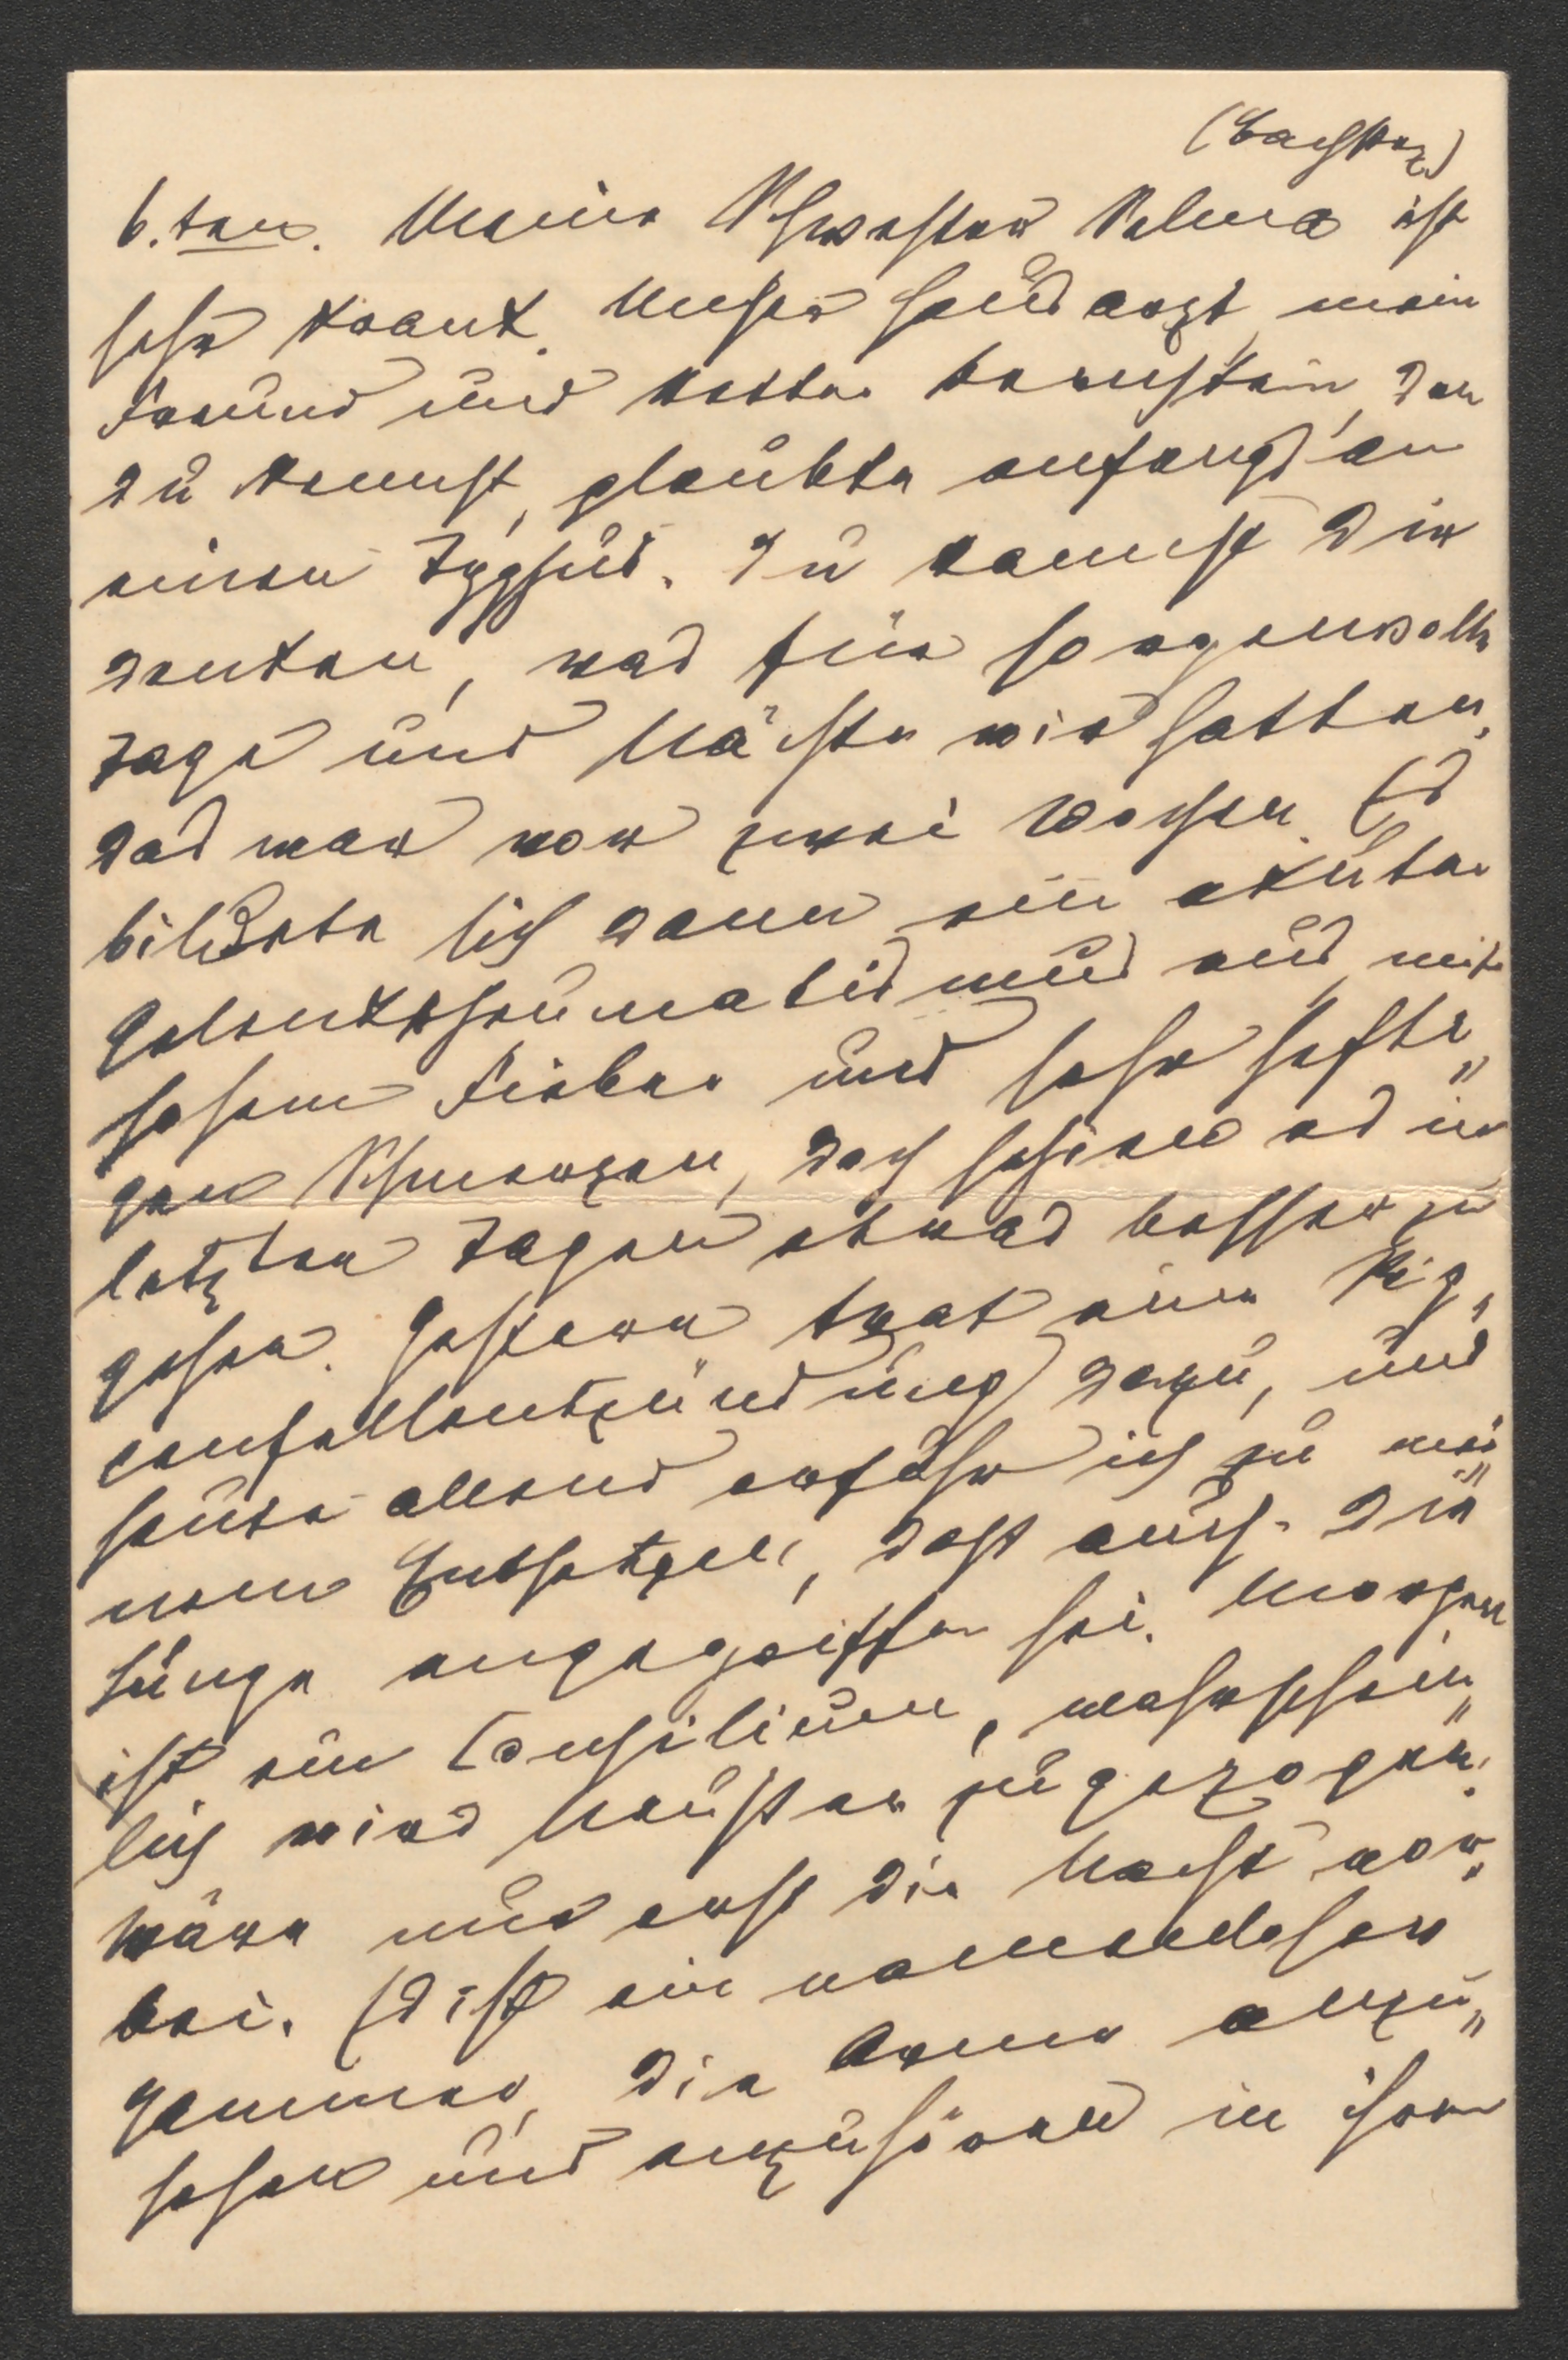 6. ten. Meine Schwester Selma ist
sehr krank. Unser Hausarzt, mein
Freund und Vetter Bernstein, den
Du kennst, glaubte anfangs an
einen Typhus. Du kannst Dir
denken, was für sorgenvolle
Tage und Nächte wir hatten.
Das war vor zwei Wochen. Es
bildete sich dann ein akuter
Gelenkrheumatismus aus, mit
hohem Fieber und sehr hefti„
gen Schmerzen, doch schien es in
letzten Tagen etwas besser zu
gehen. Gestern trat eine Rip„
penfellentzündung dazu, und
heute abend erfuhr ich zu mei„
nem Entsetzen, dass auch die
Lunge angegriffen sei. Morgen
ist ein Consilium, wahrschein„
lich wird Neisser zugezogen.
Wäre nur erst die Nacht vor„
bei. Es ist ein namenloser
Jammer, die Arme anzu„
sehen und anzuhören in ihrem